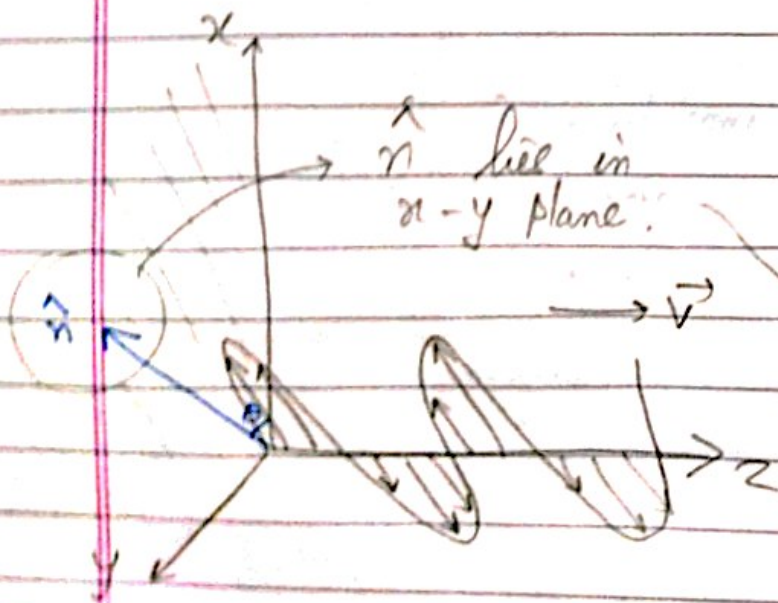 x
n̂ lies in
x-y plane.
n̂
→ v⃗
θ
z
y